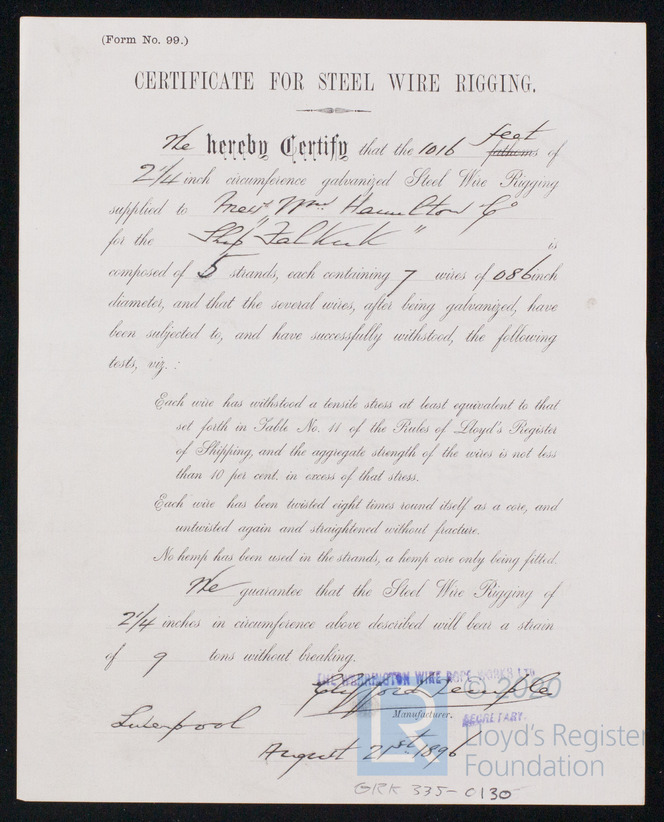 (Form No. 99.)
CERTIFICATE FOR STEEL WIRE RIGGING.
We hereby Certify that the 1016 fathoms feet of
2 1/4 inch circumference galvanized Steel Wire Rigging
supplied to Messrs Wm Hamilton & Co
for the Ship "Falkirk" is
composed of 5 strands, each containing 7 wires of 086 inch
diameter, and that the several wires, after being galvanized, have
been subjected to, and have successfully withstood, the following
tests, viz.:
Each wire has withstood a tensile stress at least equivalent to that
set forth in Table No. 11 of the Rules of Lloyd's Register
of Shipping, and the aggregate strength of the wires is not less
than 10 per cent. in excess of that stress.
Each wire has been twisted eight times round itself as a core, and
untwisted again and straightened without fracture.
No hemp has been used in the strands, a hemp core only being fitted.
We guarantee that the Steel Wire Rigging of
2 1/4 inches in circumference above described will bear a strain
of 9 tons without breaking.
THE WARRINGTON WIRE ROPE WORKS LTD
Manufacturer.
SECRETARY.
Liverpool
August 21st 1896
© 2020
LR
Lloyd's Register
Foundation
GRK 335-0130